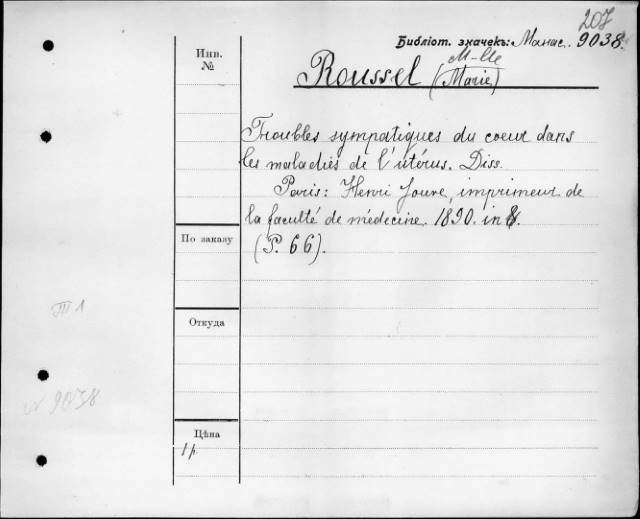 207
Библіот. значекъ: Манас. 9038
Инв.
№
Roussel (M-lle
Marie)
Troubles sympatiques du coeur dans
les maladies de l'utérus. Diss.
Paris: Henri Jouve, imprimeur de
la faculté de médecine. 1890. in 8.
(P. 66).
По заказу
Откуда
Цѣна
1 р.
№ 9038